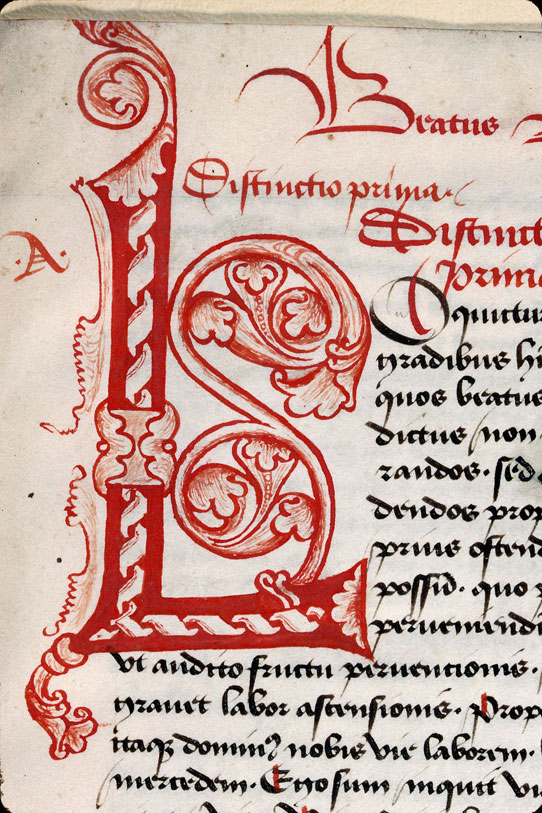 Beatus
Distinctio prima.
Distinct
·A·
Prima
Loquitur
gradibus hu
quos beatus
dictus non
randos. sed
dendos prop
prius ostend
possū. quo p
perueniendi
vt audito fructu peruencionis.
grauet labor ascensionis. Prop
itaqꝫ domin9 nobis vie laborem.
mercedem. Ego sum inquit vi